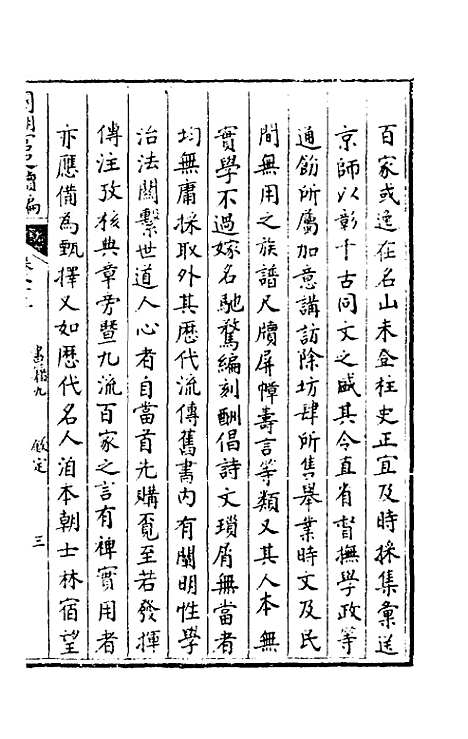 百家或逸在名山未登柱史正宜及時採集彙送
京師以彰千古同文之盛其令直省督撫學政等
通飭所屬加意購訪除坊肆所售舉業時文及民
間無用之族譜尺牘屏幛壽言等類又其人本無
實學不過嫁名馳騖編刻酬倡詩文瑣屑無當者
均無庸採取外其歷代流傳舊書內有闡明性學
治法關繫世道人心者自當首先購覓至若發揮
傳注攷核典章旁暨九流百家之言有裨實用者
亦應備為甄擇又如歷代名人洎本朝士林宿望
書籍九　欽定　三